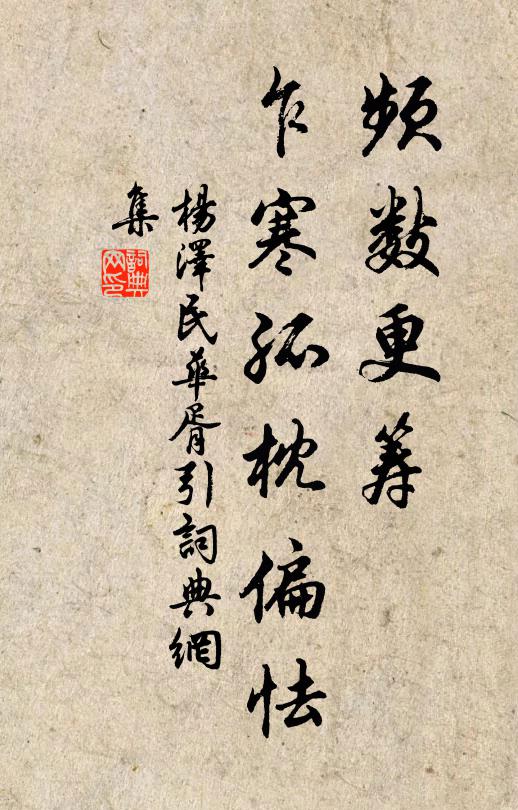 頻數更筹
乍寒孤枕偏怯
楊澤民華胥引詞典網
集
詞典网印